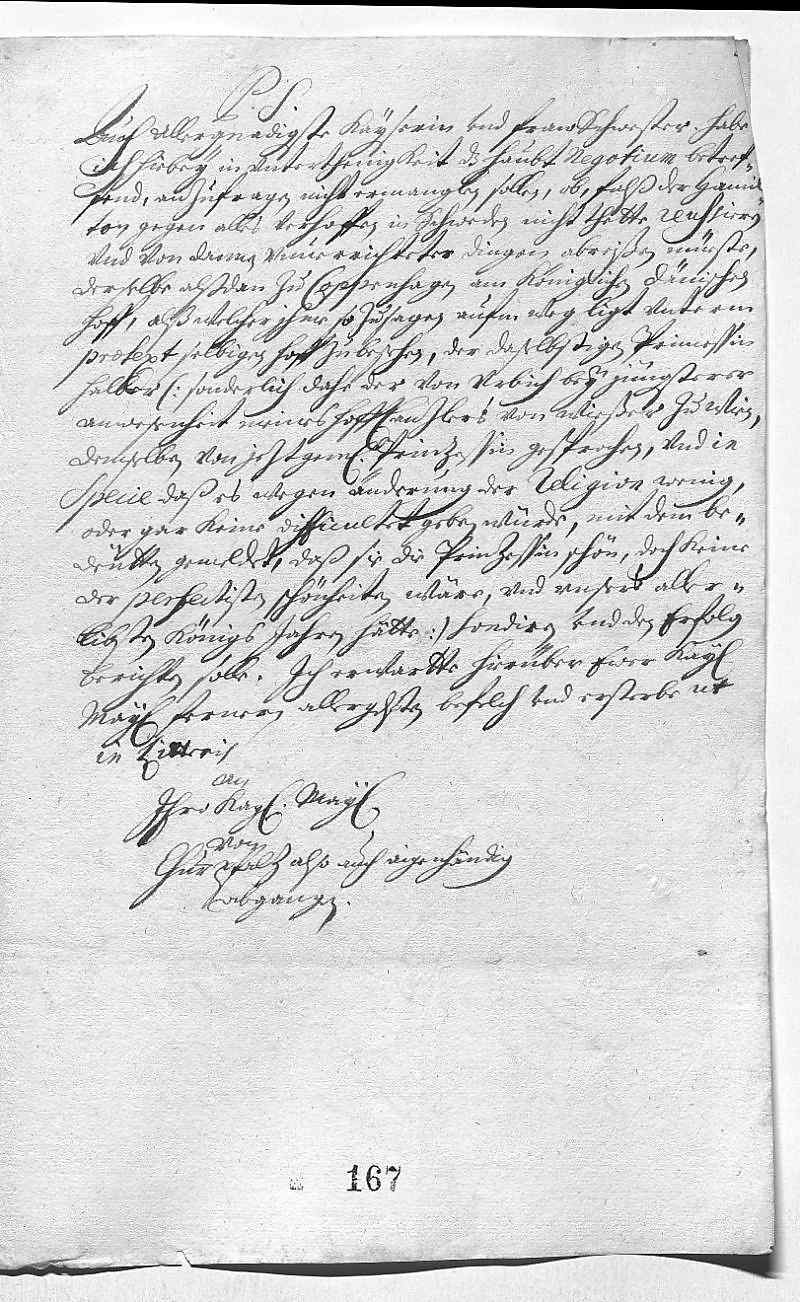 P. S.
Auch Allergnedigste Kayserin und fraw Schwester. habe
ich hiebey in Unterthenigkeit dß haubt Negotium betref-
fend, anzufragen nicht ermanglen sollen, ob, falß der Hamil-
ton gegen alles verhoffen in Schweden nicht thette reussiren
und von dannen unverrichteter dingen abreißen müeste,
derselbe alßdan zu Coppenhagen am Königlichen Dänischen
hoff, alß welcher ihme so zusagen aufm weg ligt unterm
prætext selbigen hoff zu besehen, der daselbstigen Princessin
halber (: sonderlich dahe der von Urbich bey jüngsterer
anwesenheit meines hoff Canzlers von Wießer zu Wien,
demselben von jeztgem. Prinzessin gesprochen, und in
Specie daß es wegen änderung der Religion wenig,
oder gar keine difficultet geben würde, mit dem be-
deutten gemeldet, daß sie die Prinzessin schön, doch keine
der perfectisten schönheiten wäre, und unsers aller-
liebsten Königs Jahren hätte :) sondiren und den Erfolg
berichten solle. Ich erwartte hierüber Ewer Kayl.
Mayl. fernern allergdsten befelch und ersterbe ut
in Litteris
an
Ihro Kayl. Mayl.
von
Churpfalz also auch aigenhändig
abgangen.
167